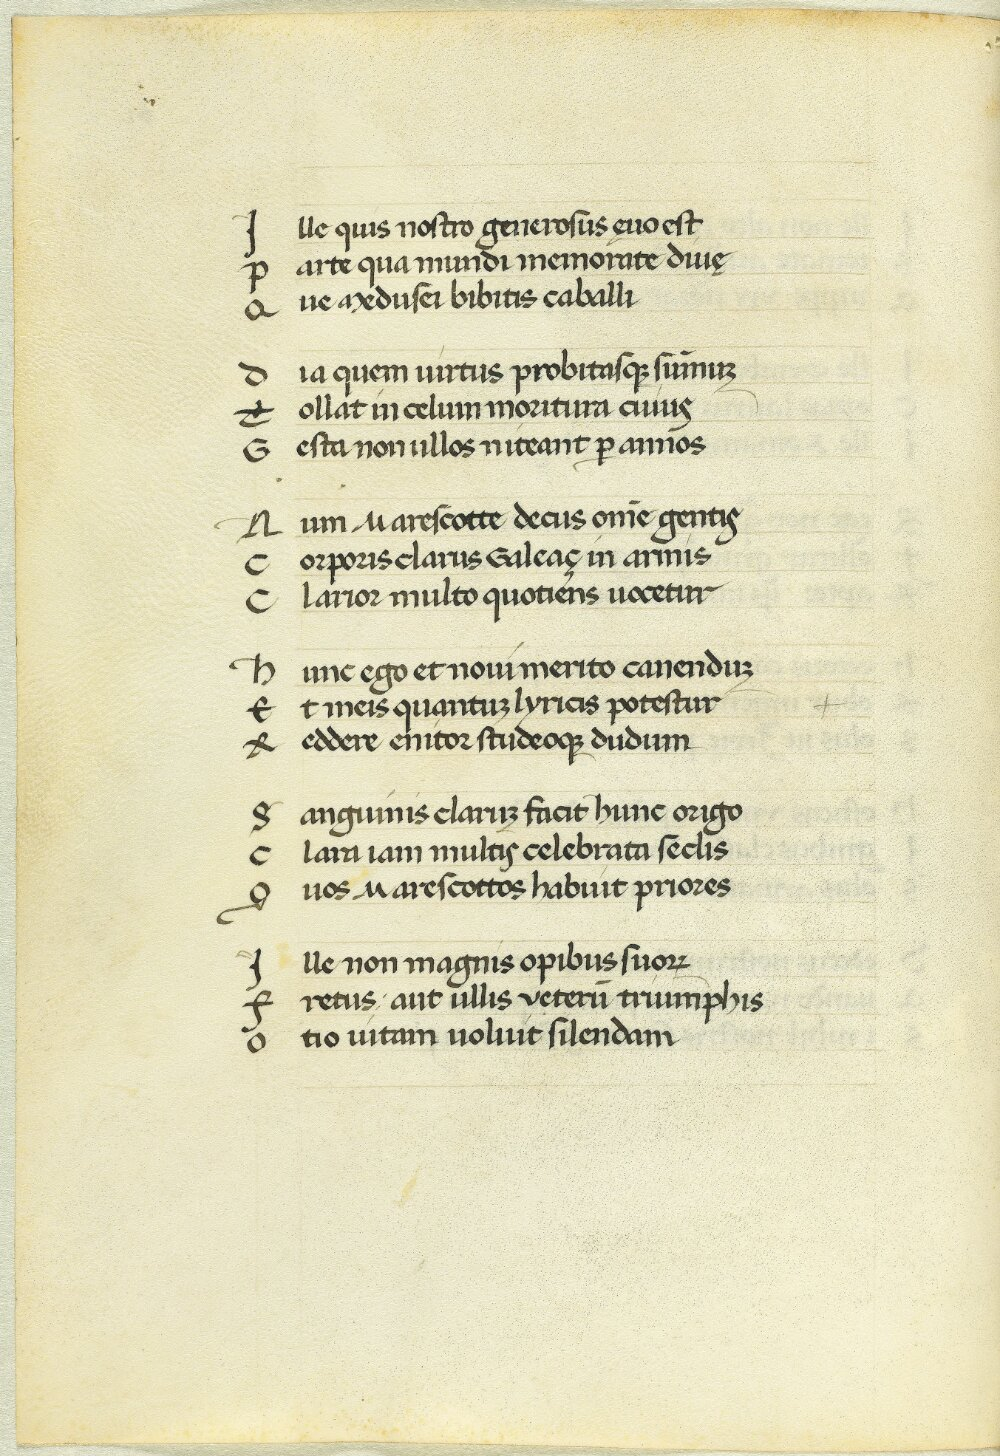 Ille quis nostro generosus ęuo est
Parte qua mundi memorate diuię
Que axedusei bibitis caballi
Dia quem uirtus probitasqꝫ sūmuꝫ
Tollat in celum moritura cuiuꝰ
Gesta non ullos niteant ꝑ annos
Num Marescotte decus om̄e gentis
Corporis clarus Galeaç in armis
Clarior multo quotiens uocetur
Hunc ego et noui merito canenduꝫ
Et meis quantuꝫ lyricis potestur
Reddere enitor studeoqꝫ dudum
Sanguinis claruꝫ facit hunc origo
Clara iam multis celebrata seclis
Quos Marescottos habuit priores
Ille non magnis opibus suoꝝ
Fretus aut ullis veterū triumphis
Otio uitam uoluit silendam